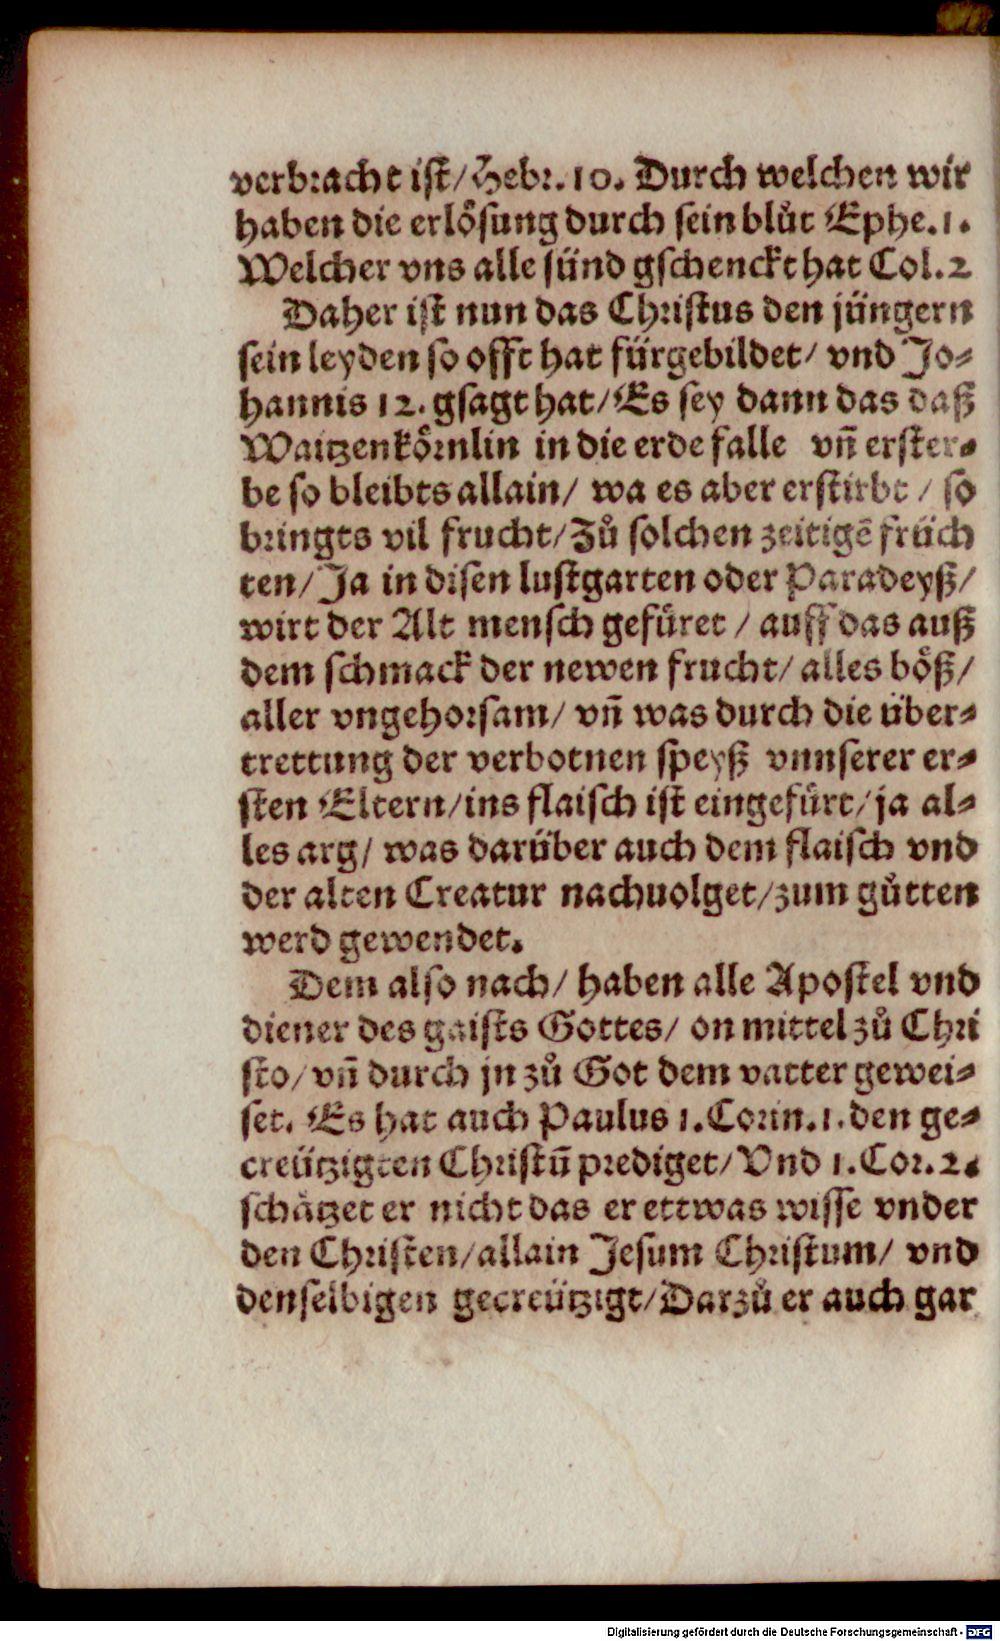 verbracht ist/ Hebr. 10. Durch welchen wir
haben die erlösung durch sein blůt Ephe. 1.
Welcher vns alle sünd gschenckt hat Col. 2
Daher ist nun das Christus den jüngern
sein leyden so offt hat fürgebildet/ vnd Jo-
hannis 12. gsagt hat/ Es sey dann das daß
Waitzenkörnlin in die erde falle vn̄ erster-
be so bleibts allain/ wa es aber erstirbt / so
bringts vil frucht/ Zů solchen zeitigē früch
ten/ Ja in disen lustgarten oder Paradeyß/
wirt der Alt mensch gefüret / auff das auß
dem schmack der newen frucht/ alles böß/
aller vngehorsam/ vn̄ was durch die über-
trettung der verbotnen speyß vnnserer er-
sten Eltern/ ins flaisch ist eingefürt/ ja al-
les arg/ was darüber auch dem flaisch vnd
der alten Creatur nachuolget/ zum gůtten
werd gewendet.
Dem also nach/ haben alle Apostel vnd
diener des gaists Gottes/ on mittel zů Chri
sto/ vn̄ durch jn zů Got dem vatter gewei-
set. Es hat auch Paulus 1. Corin. 1. den ge-
creützigten Christū prediget/ Vnd 1. Cor. 2.
schätzet er nicht das er ettwas wisse vnder
den Christen/ allain Jesum Christum/ vnd
denselbigen gecreützigt/ Darzů er auch gar
Digitalisierung gefördert durch die Deutsche Forschungsgemeinschaft - DFG